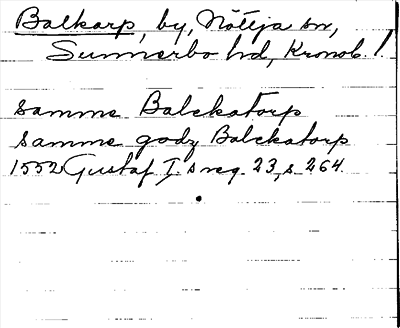 Balkarp, by, Nöttja sn,
Sunnerbo hd, Kronob. l.
samme Balckatorp
samme godz Balckatorp
1552 Gustaf I.s reg. 23, s. 264.